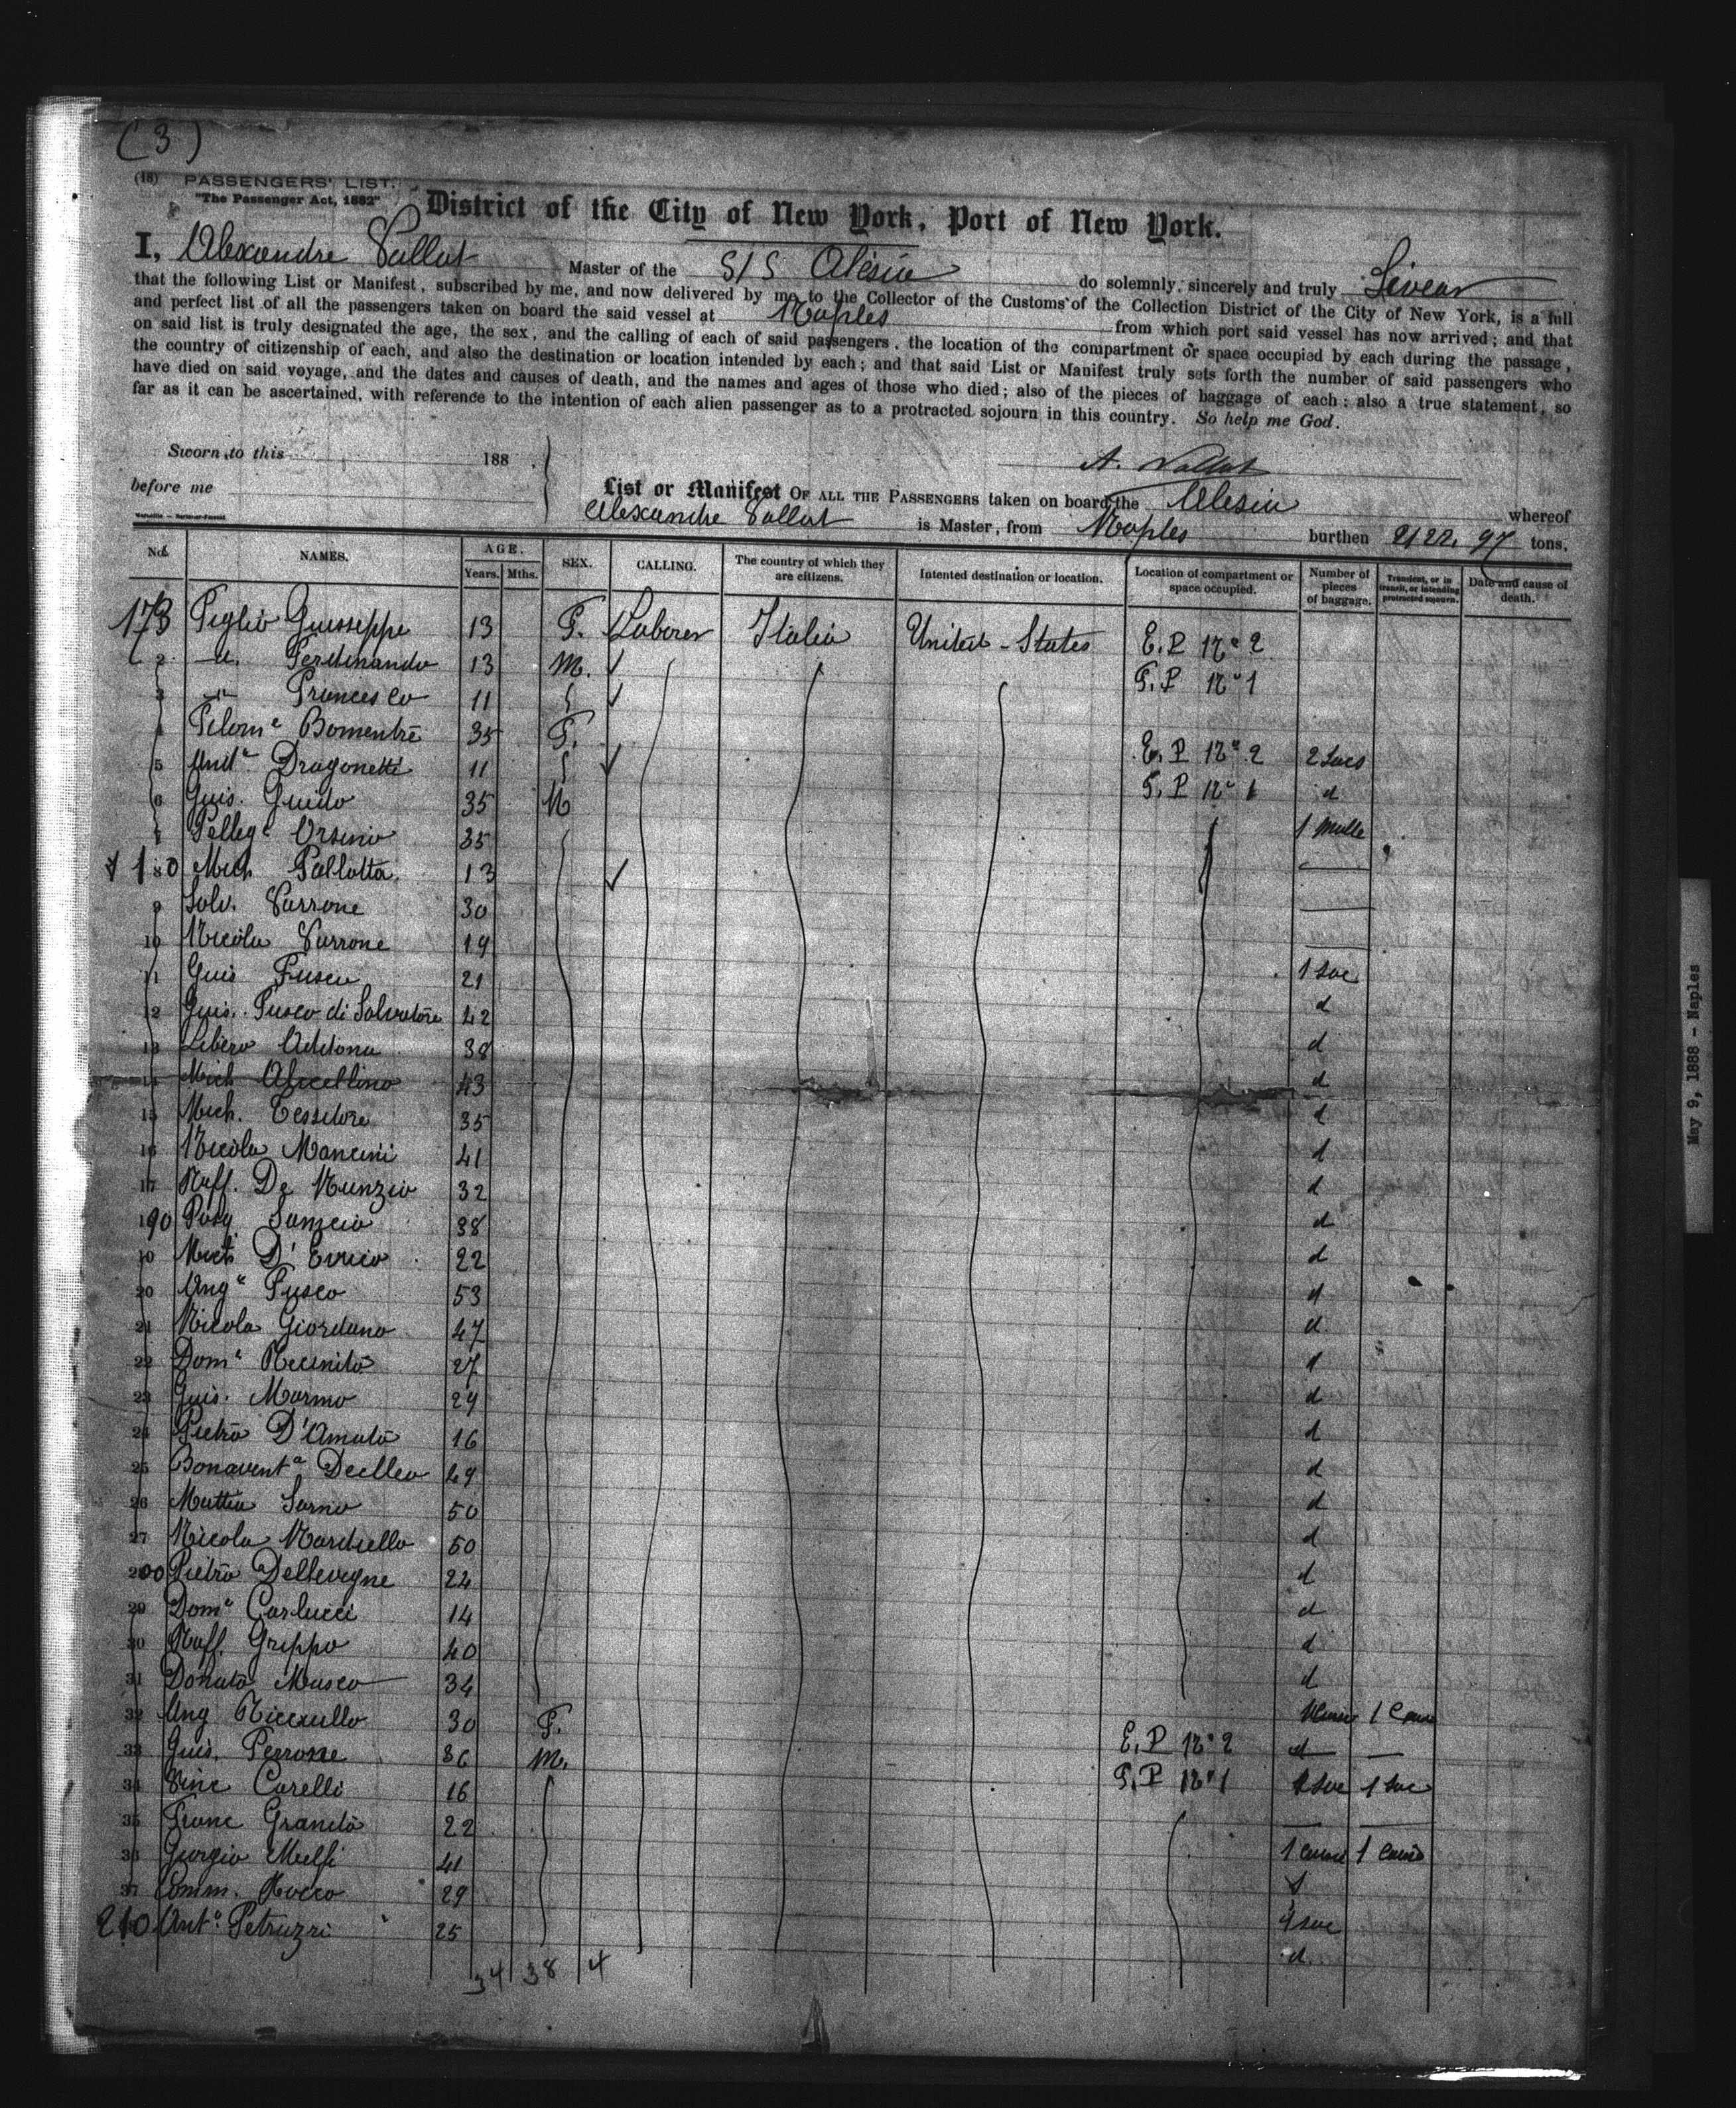 (3)
(18) PASSENGERS' LIST.
"The Passenger Act, 1882"
District of the City of New York, Port of New York.
I, Alexandre Vallat Master of the S/S Alésia do solemnly, sincerely and truly Swear
that the following List or Manifest, subscribed by me, and now delivered by me to the Collector of the Customs of the Collection District of the City of New York, is a full
and perfect list of all the passengers taken on board the said vessel at Naples from which port said vessel has now arrived; and that
on said list is truly designated the age, the sex, and the calling of each of said passengers, the location of the compartment or space occupied by each during the passage,
the country of citizenship of each, and also the destination or location intended by each; and that said List or Manifest truly sets forth the number of said passengers who
have died on said voyage, and the dates and causes of death, and the names and ages of those who died; also of the pieces of baggage of each: also a true statement, so
far as it can be ascertained, with reference to the intention of each alien passenger as to a protracted sojourn in this country. So help me God.
Sworn to this 188 .
A. Vallat
before me
List or Manifest OF ALL THE PASSENGERS taken on board the Alesia whereof
Alexandre Vallat is Master, from Naples burthen 2122.97 tons.
No. NAMES. AGE. Years. Mths. SEX. CALLING. The country of which they are citizens. Intented destination or location. Location of compartment or space occupied. Number of pieces of baggage. Transient, or in transit, or intending protracted sojourn. Date and cause of death.
173 Guisseppe 13 F. Laborer Italia United-States E.P N° 2
2 d. Ferdinando 13 M. F.P N° 1
3 Francesco 11
4 35 F.
5 Dragonetti 11 E.P N° 2 2 Sacs
6 Guis. Guido 35 M F.P N° 1 d
7 Pelleg° Orsino 35 1 Malle
180 Mich Pallotta 13
9 Salv. Varrone 30
10 Nicola Varrone 19
11 Guis Fusco 21 1 Sac
12 Guis. Fusco di Salvatore 42 d
13 Libero Addona 38 d
14 Mich 43 d
15 Mich. Tessitore 35 d
16 Nicola Mancini 41 d
17 Raff. De Nunzio 32 d
190 38 d
19 Mich D'Errico 22 d
20 Ang° Fusco 53 d
21 Nicola Giordano 47 d
22 Dom° 27 d
23 Guis. Marmo 29 d
24 Pietro D'Amato 16 d
25 Bonavent° 49 d
26 Mattia Sarno 50 d
27 Nicola 50 d
200 Pietro Dellevergne 22 d
29 Dom° Carlucci 14 d
30 Raff. Grippo 40 d
31 Donato Musco 34 d
32 Ang 30 F.
33 Guis. Perrone 36 M. E.P N° 2 d
34 Vinc Carelli 16 F.P N° 1 1 Sac 1 Sac
35 Franc 22
36 Giorgio Melfi 41
37 Rocco 29
210 Ant° Petruzzi 25 d
34 38 4
May 9, 1888 - Naples